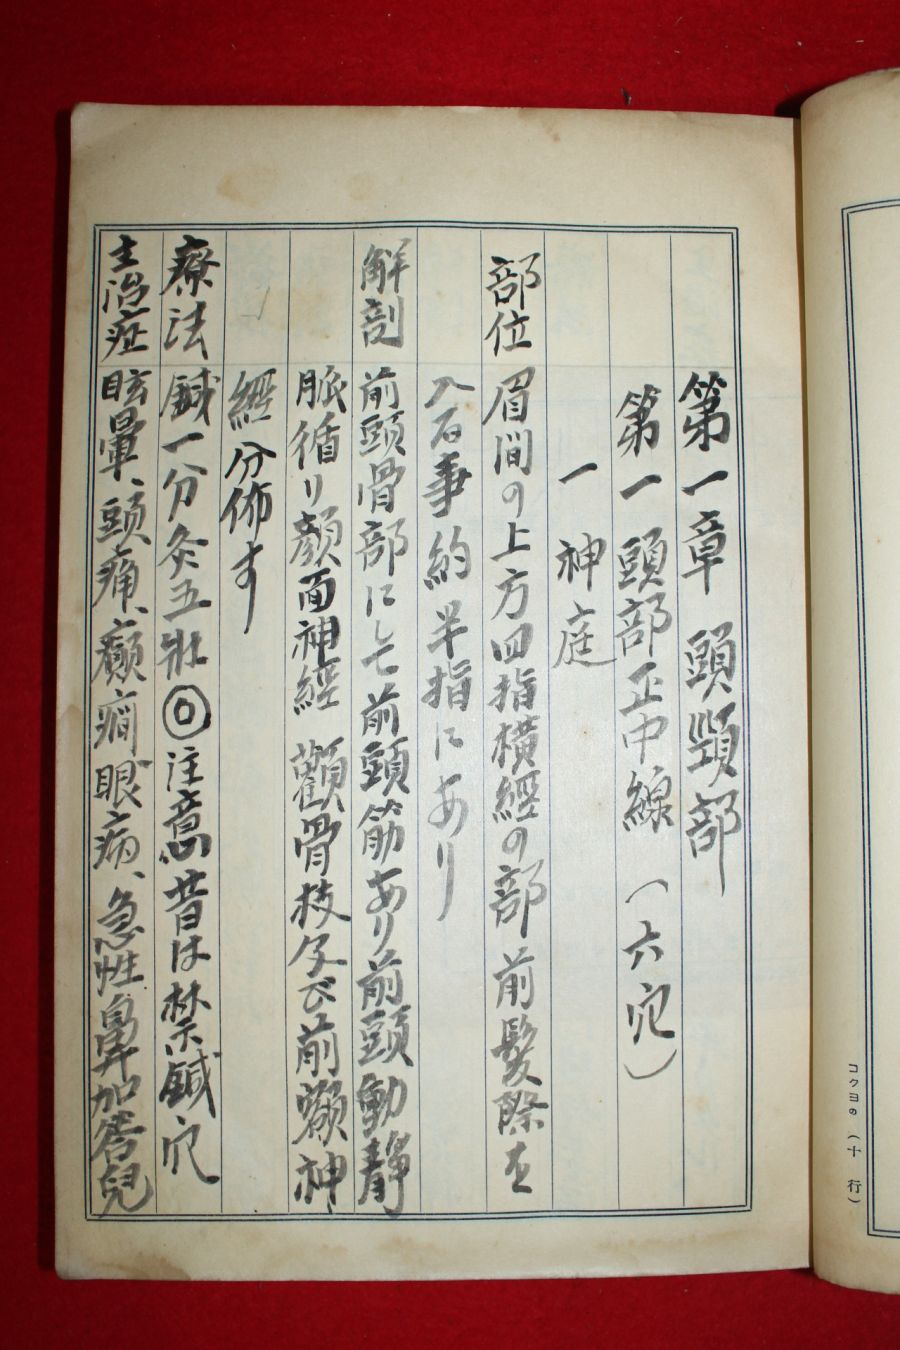 第一章 頭頸部
第一 頭部正中線（六穴）
一 神庭
部位 眉間の上方四指横經の部 前髪際を
入る事約半指にあり
解剖 前頭骨部にして前頭筋あり前頭動静
脈循り顔面神經 顴骨枝及び前額神
經分佈す
療法 鍼一分灸五壮◎注意昔は禁鍼穴
主治症 眩暈、頭痛、癲癇 眼病、急性鼻加答兒
コクヨの（十行）